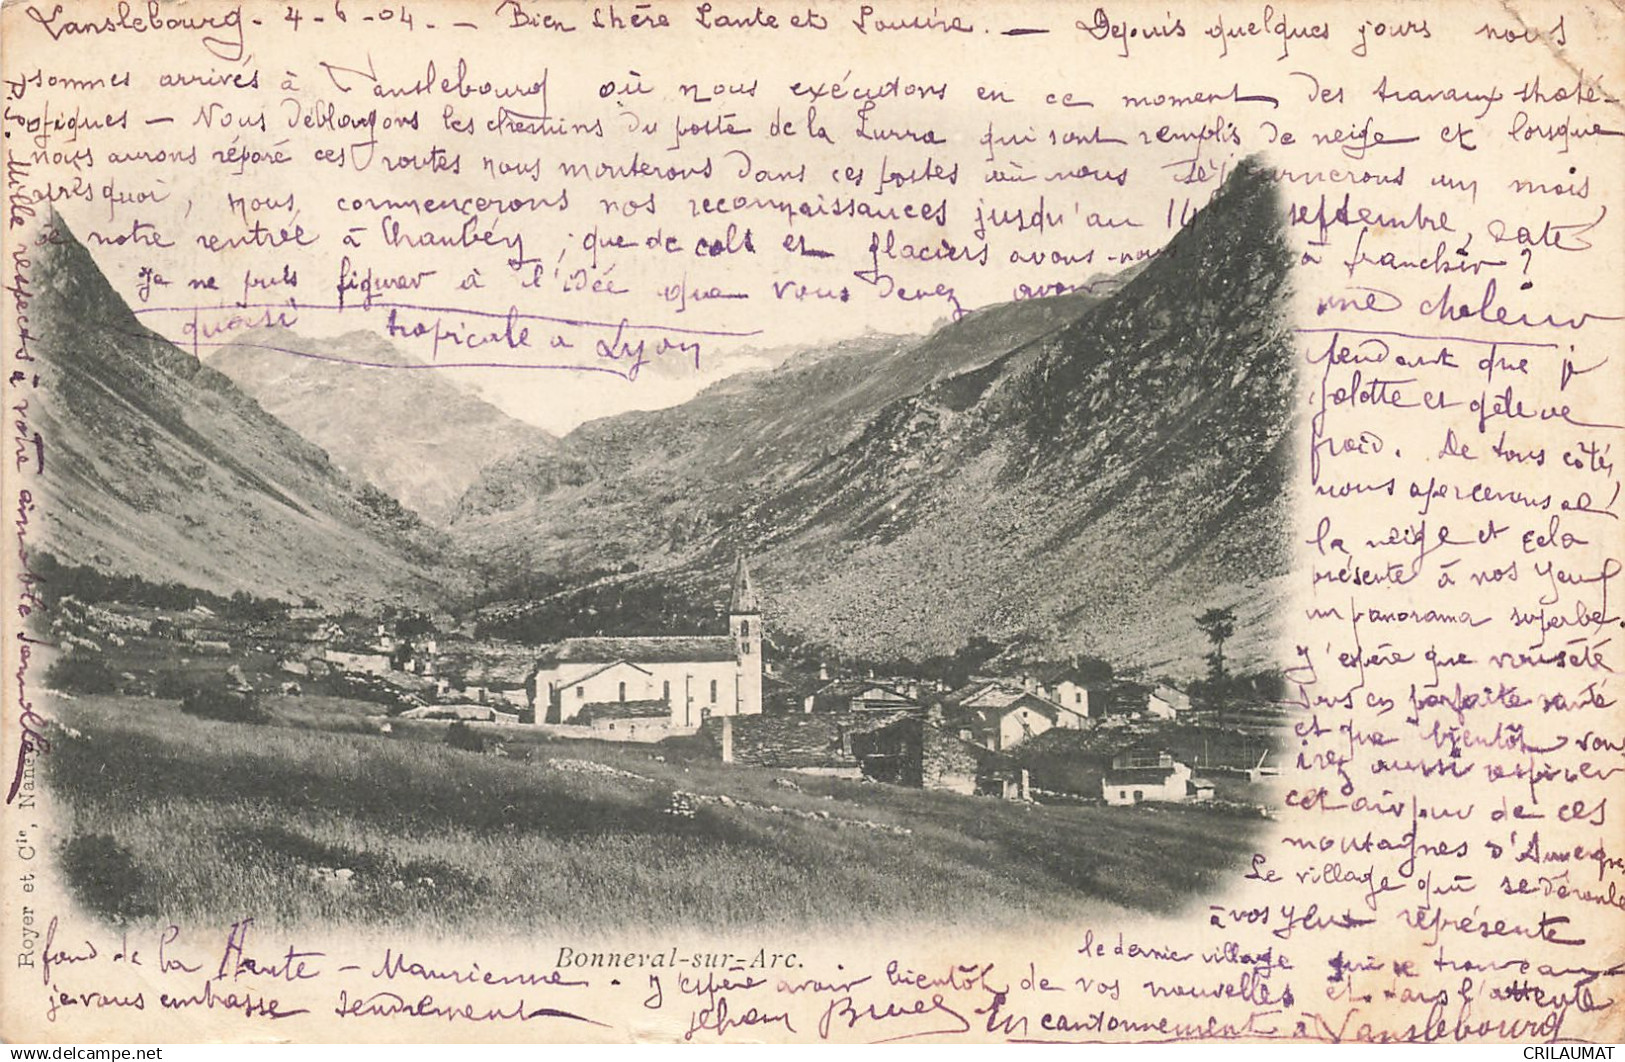 Lanslebourg - 4-6-04. - Bien Chère Tante et Louise. - Depuis quelques jours nous
sommes arrivés à Lanslebourg où nous exécutons en ce moment des travaux straté-
giques - Nous déblayons les chemins du poste de la Turra qui sont remplis de neige et lorsque
nous aurons réparé ces routes nous monterons dans ces postes où nous séjournerons un mois,
après quoi, nous commencerons nos reconnaissances jusqu'au 14 septembre, date
de notre rentrée à Chambéry; que de cols et glaciers avons-nous à franchir?
Je ne puis figurer à l'idée que vous devez avoir une chaleur
quasi tropicale à Lyon
pendant que je
golotte et gèle de
froid. De tous côtés,
nous apercevons
la neige et cela
présente à nos yeux
un panorama superbe.
J'espère que vous êtes
tous en parfaite santé
et que bientôt vous
irez aussi respirer
cet air pur de ces
montagnes d'Auvergne
Le village qui se déroule
à vos yeux représente
le dernier village qui se trouve au
fond de la Haute-Maurienne. J'espère avoir bientôt de vos nouvelles et dans l'attente
je vous embrasse tendrement
Jehan
En cantonnement à Lanslebourg
P.S. Mille respects à votre aimable famille
Bonneval-sur-Arc.
Royer et Cie, Nancy
CRILAUMAT